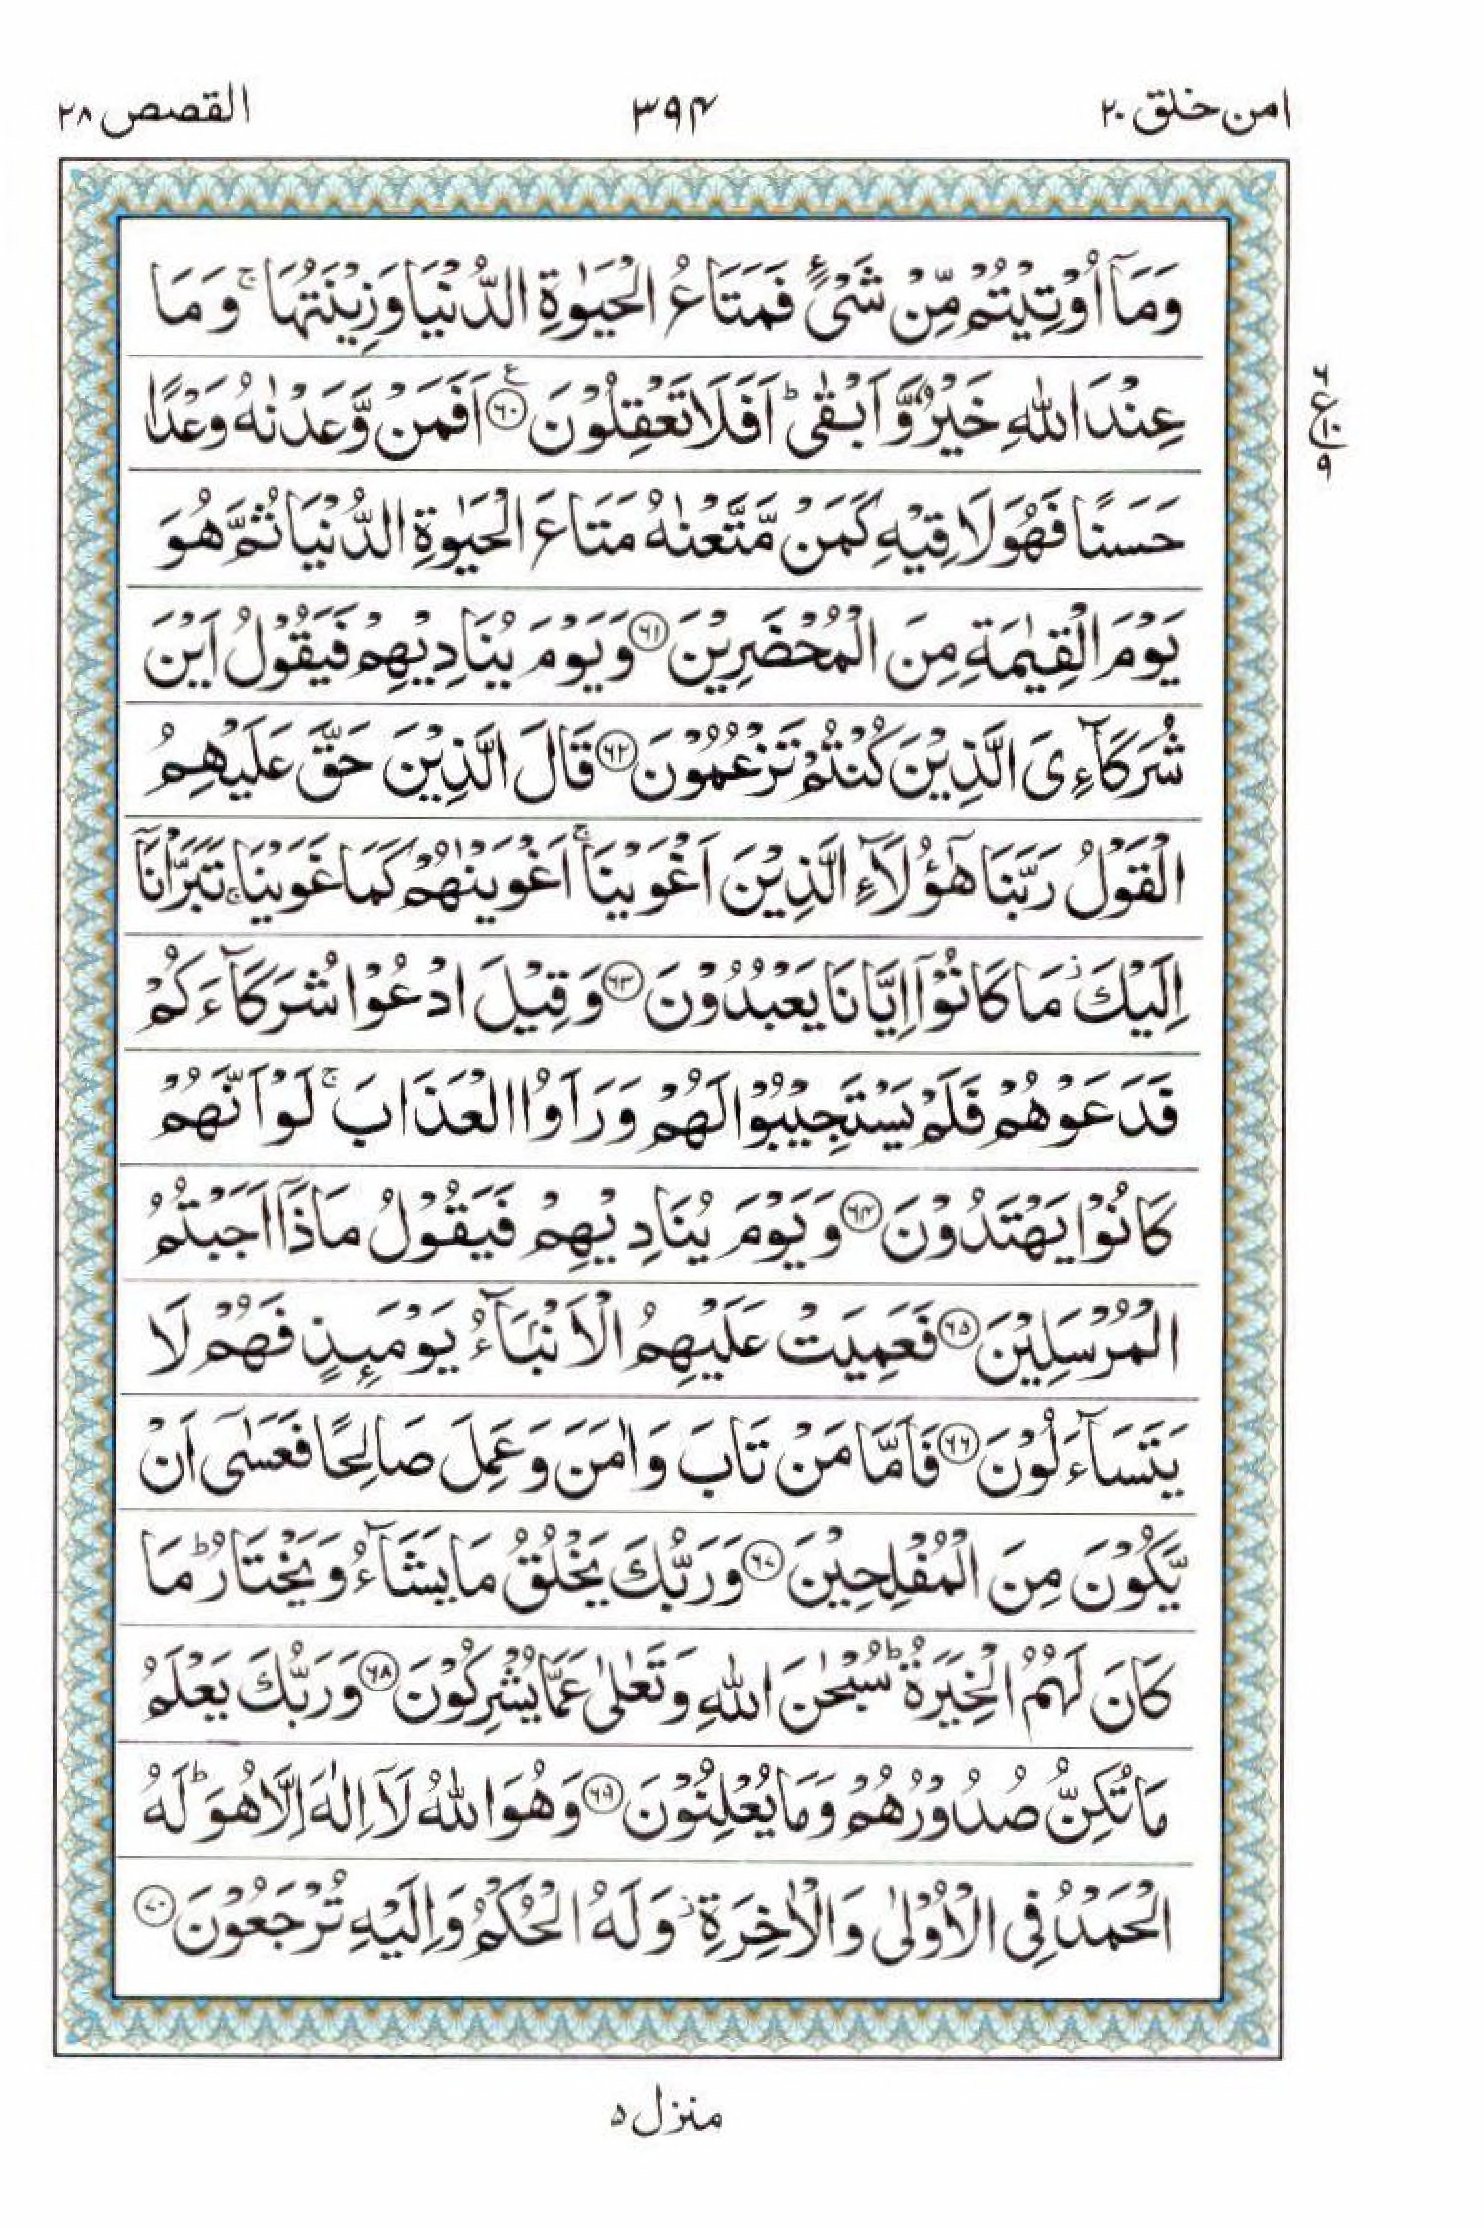 امن خلق ۲۰
۳۹۴
القصص ۲۸
وَمَآ اُوْتِيْتُمْ مِّنْ شَيْءٍ فَمَتَاعُ الْحَيٰوةِ الدُّنْيَا وَزِيْنَتُهَا ۚ وَمَا
عِنْدَ اللّٰهِ خَيْرٌ وَّاَبْقٰى ؕ اَفَلَا تَعْقِلُوْنَ ۧ‏﴿۶۰﴾ اَفَمَنْ وَّعَدْنٰهُ وَعْدًا
حَسَنًا فَهُوَ لَاقِيْهِ كَمَنْ مَّتَّعْنٰهُ مَتَاعَ الْحَيٰوةِ الدُّنْيَا ثُمَّ هُوَ
يَوْمَ الْقِيٰمَةِ مِنَ الْمُحْضَرِيْنَ ﴿۶۱﴾ وَيَوْمَ يُنَادِيْهِمْ فَيَقُوْلُ اَيْنَ
شُرَكَآءِىَ الَّذِيْنَ كُنْتُمْ تَزْعُمُوْنَ ﴿۶۲﴾ قَالَ الَّذِيْنَ حَقَّ عَلَيْهِمُ
الْقَوْلُ رَبَّنَا هٰٓؤُلَآءِ الَّذِيْنَ اَغْوَيْنَا ۚ اَغْوَيْنٰهُمْ كَمَا غَوَيْنَا ۚ تَبَرَّاْنَآ
اِلَيْكَ ؗ مَا كَانُوْٓا اِيَّانَا يَعْبُدُوْنَ ﴿۶۳﴾ وَقِيْلَ ادْعُوْا شُرَكَآءَكُمْ
فَدَعَوْهُمْ فَلَمْ يَسْتَجِيْبُوْا لَهُمْ وَرَاَوُا الْعَذَابَ ۚ لَوْ اَنَّهُمْ
كَانُوْا يَهْتَدُوْنَ ﴿۶۴﴾ وَيَوْمَ يُنَادِيْهِمْ فَيَقُوْلُ مَاذَآ اَجَبْتُمُ
الْمُرْسَلِيْنَ ﴿۶۵﴾ فَعَمِيَتْ عَلَيْهِمُ الْاَنْۢبَآءُ يَوْمَئِذٍ فَهُمْ لَا
يَتَسَآءَلُوْنَ ﴿۶۶﴾ فَاَمَّا مَنْ تَابَ وَاٰمَنَ وَعَمِلَ صَالِحًا فَعَسٰٓى اَنْ
يَّكُوْنَ مِنَ الْمُفْلِحِيْنَ ﴿۶۷﴾ وَرَبُّكَ يَخْلُقُ مَا يَشَآءُ وَيَخْتَارُ ؕ مَا
كَانَ لَهُمُ الْخِيَرَةُ ؕ سُبْحٰنَ اللّٰهِ وَتَعٰلٰى عَمَّا يُشْرِكُوْنَ ﴿۶۸﴾ وَرَبُّكَ يَعْلَمُ
مَا تُكِنُّ صُدُوْرُهُمْ وَمَا يُعْلِنُوْنَ ﴿۶۹﴾ وَهُوَ اللّٰهُ لَآ اِلٰهَ اِلَّا هُوَ ؕ لَهُ
الْحَمْدُ فِى الْاُوْلٰى وَالْاٰخِرَةِ ؗ وَلَهُ الْحُكْمُ وَاِلَيْهِ تُرْجَعُوْنَ ﴿۷۰﴾
۶
ع
۱۰
۹
منزل ۵